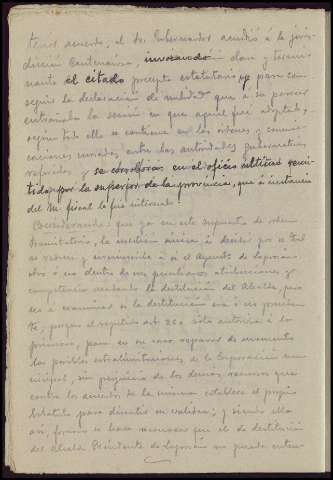 acuerdo, el Sr. Gobernador acudió á la juris-
dicción Contenciosa, invocando clara y termi-
nante el citado precepto estatutario para con-
seguir la declaración de nulidad que á su parecer
entrañaba la sesión en que aquel fué adoptado,
según todo ello se contiene en las órdenes y comuni-
caciones cruzadas entre las autoridades gubernativas
referidas y se corrobora en el oficio último remi-
tido por la superior de la provincia, que á instancia
del M. fiscal le fué interesado.
Considerando que ya en este supuesto de orden
tramitatorio, la cuestión única á decidir por el Tri-
bunal se reduce á si el Ayunto. de
obró ó no dentro de sus peculiares atribuciones y
competencia acordando la destitución del Alcalde, pero
no á examinar si la destitución era ó no proceden-
te, porque el repetido art. 260 sólo autoriza á los
primeros, para en su caso reparar de momento
las posibles extralimitaciones de la Corporación mu-
nicipal, sin perjuicio de los demás recursos que
contra los acuerdos de la misma establece el propio
Estatuto para discutir su validez; y siendo ello
así, forzoso se hace reconocer que el de destitución
del Alcalde Presidente de no puede enten-